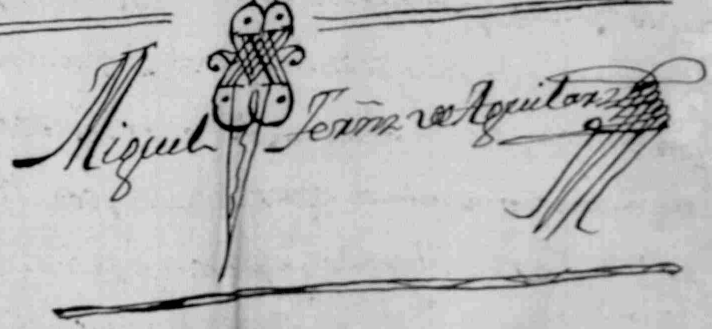 Miguel Fern̄z de Aguilar